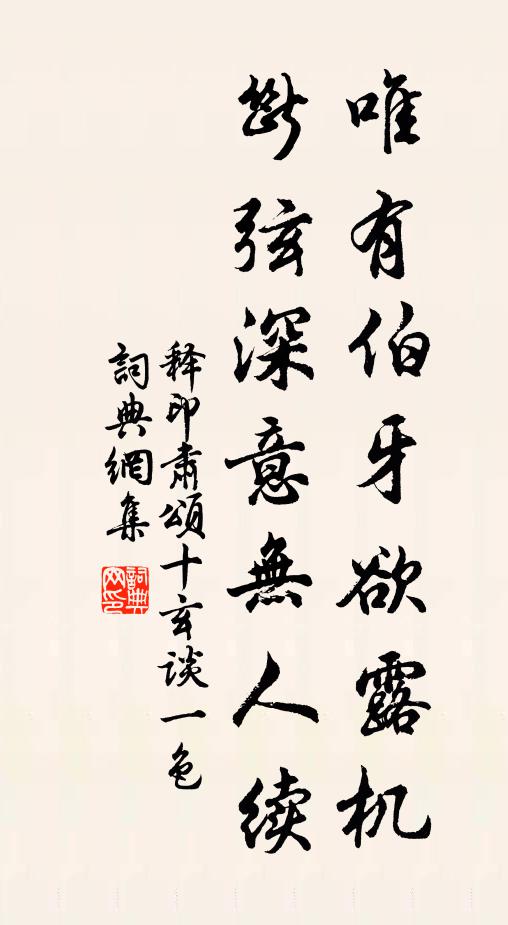 唯有伯牙欲露机
斷弦深意無人续
释印肅頌十玄谈一色
詞典網集
詞典
网印